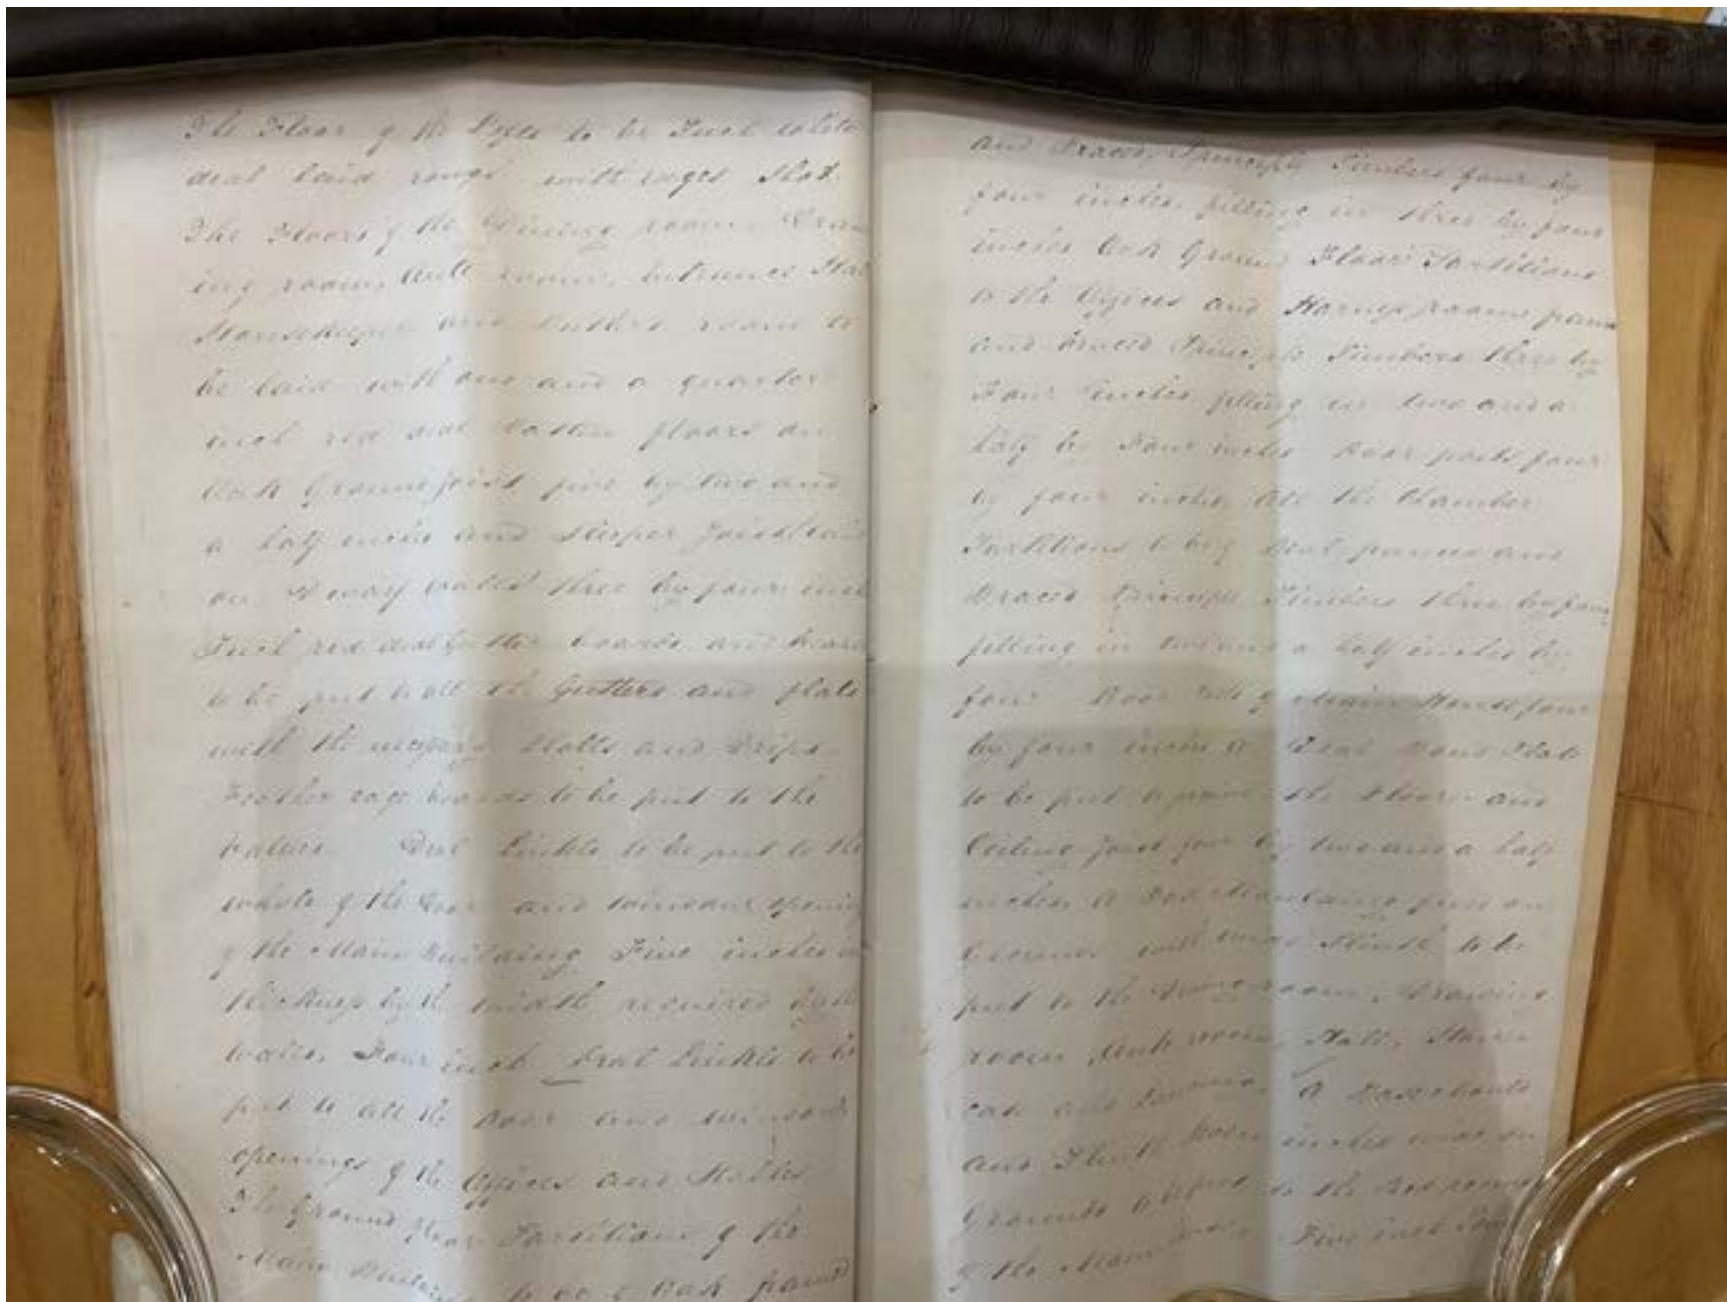 The Floor of the Lofts to be Inch white
deal laid rough with edges Shot.
The Floors of the Dining room, Draw
ing room, Anti room, Entrance Hall
Housekeepers and Butlers room to
be laid with one and a quarter
inch red deal Batten floors on
Oak Ground joist five by two and
a half inches and Sleeper Joists laid
on Dwarf walls three by four inch
Inch red deal Gutter boards and bear
to be put to all the Gutters and flats
with the necessary Rolls and Drips
Feather edge boards to be put to the
valleys Deal Lintels to be put to the
whole of the Door and window opening
of the Main Building Five inches in
thickness by the width required by the
walls, Four inch Deal Lintels to be
put to all the Door and window
openings of the Offices and Stables
The Ground floor Partitions of the
Main Building to be of Oak framed
and Braced, Principle Timbers four by
four inches filling in three by four
inches Oak Ground Floor Partitions
to the Offices and Harness rooms framed
and braced Principle Timbers three by
Four inches filling in two and a
half by Four inches Door posts four
by four inches All the Chamber
Partitions to be of Deal framed and
Braced Principle Timbers three by four
filling in two and a half inches by
four Door of Main House four
by four inches Deal Bond Plate
to be put to the Floors and
Ceiling joist four by two and a half
inches A Base Moulding fixed on
Grounds with Plinth to be
put to the Dining room, Drawing
room, Anti room, Hall, Stair
case and A Base
and Plinth inches wide on
Grounds to the Bed rooms
of the Main Five inch